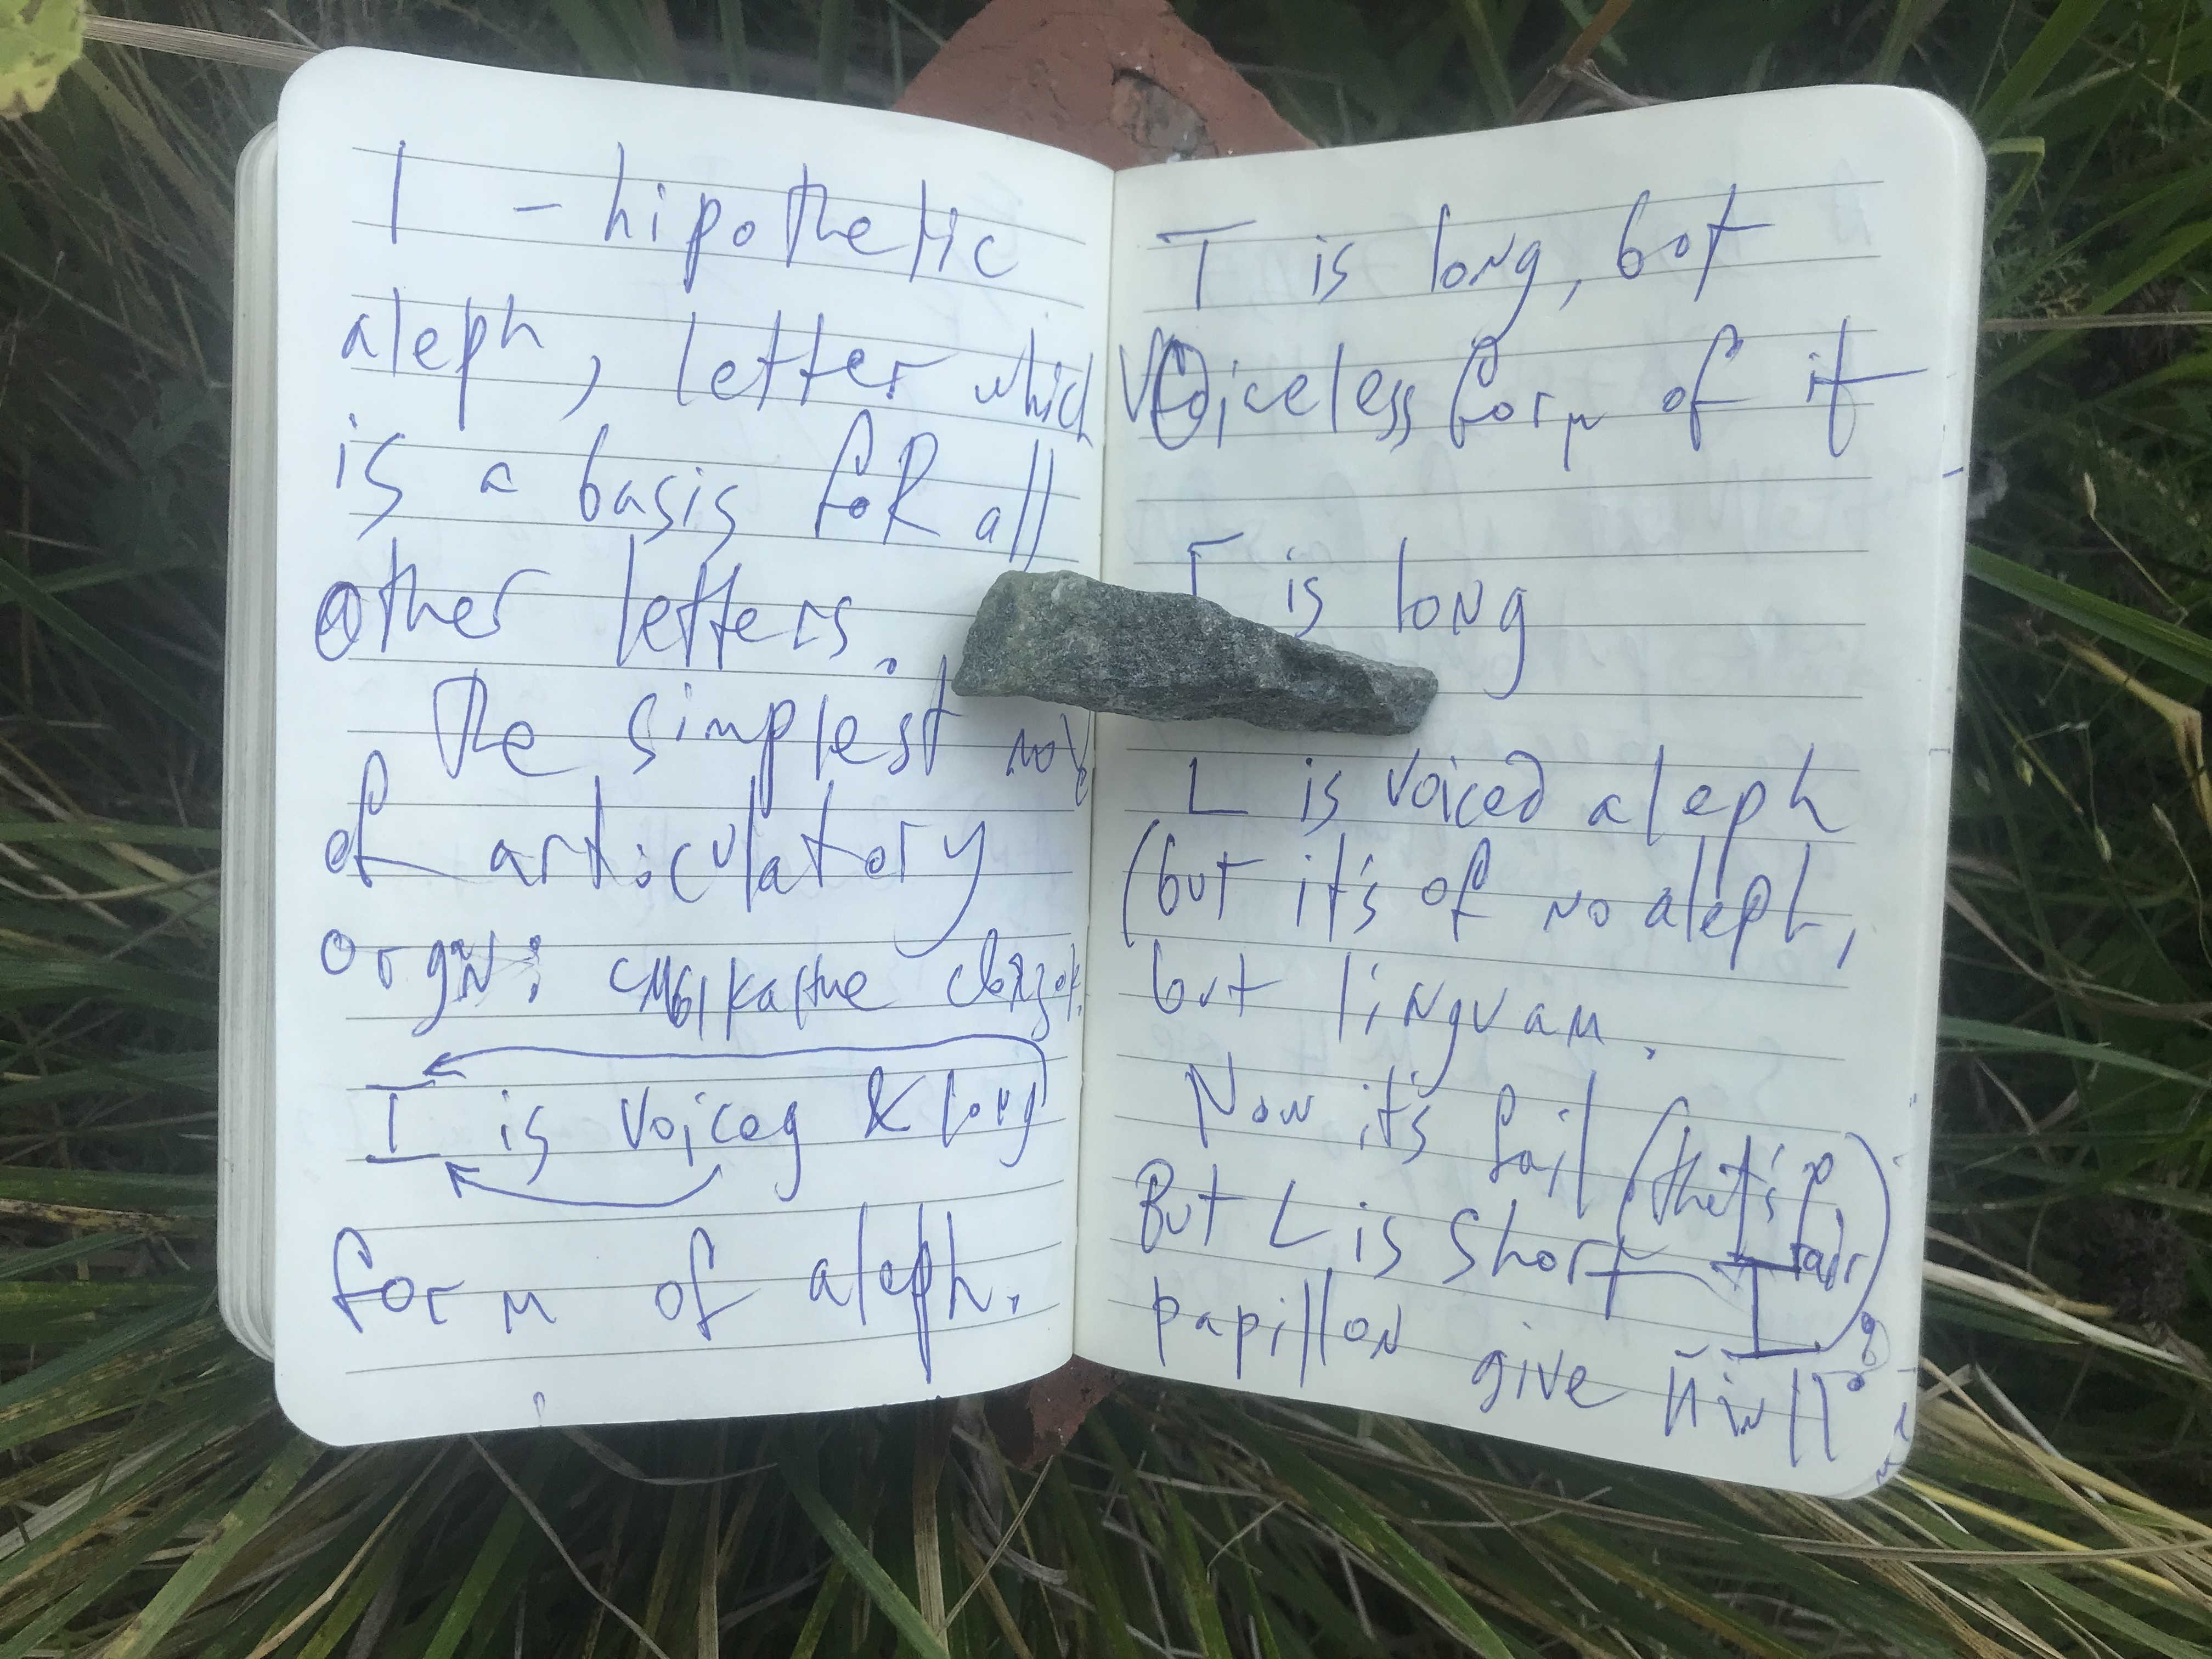 | - hipothetic
aleph, letter which
is a basis foR all
other letters.
The simplest mov
of articulatory
orgn: смыкание
I is voiceg & long
form of aleph.
T is long, bot
Voiceless form of it
Γ is long
L is voiced aleph
(but it's of no aleph,
but lingvam.
Now it's fail (that's
But L is short
papillon give